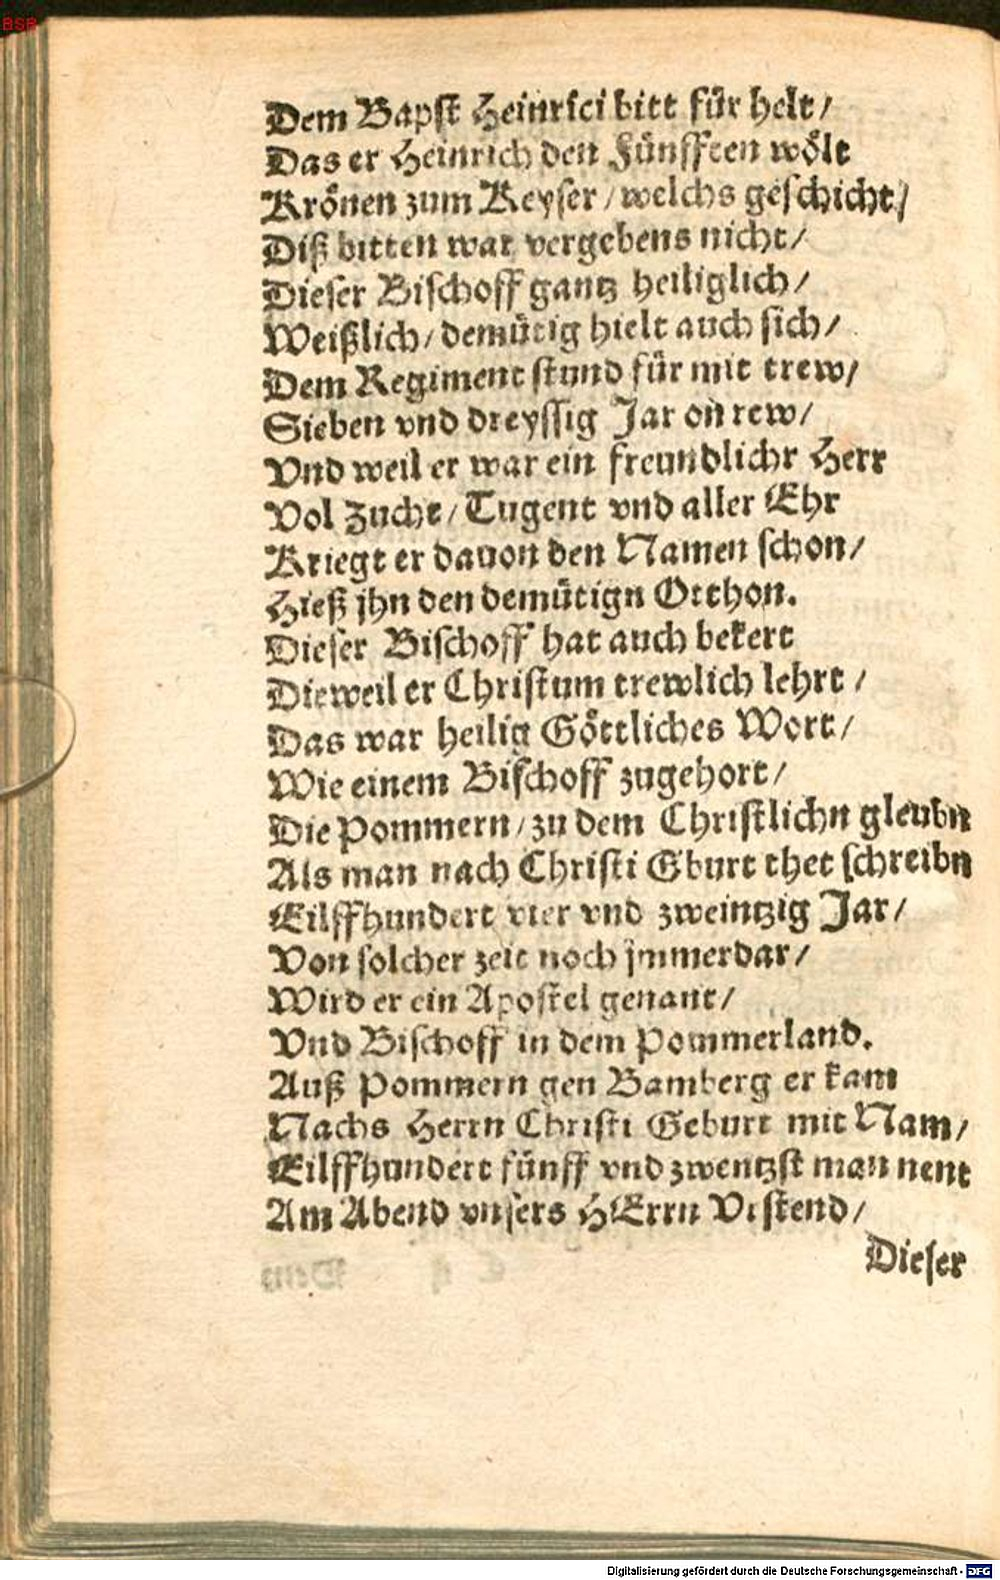 BSB
Dem Bapst Heinrici bitt für helt/
Das er Heinrich den Fünfften wölt
Krönen zum Keyser/welchs geschicht/
Diß bitten war vergebens nicht/
Dieser Bischoff gantz heiliglich/
Weißlich/demütig hielt auch sich/
Dem Regiment stund für mit trew/
Sieben vnd dreyssig Jar on rew/
Vnd weil er war ein freundlichr Herr
Vol Zucht/Tugent vnd aller Ehr
Kriegt er dauon den Namen schon/
Hieß jhn den demütign Otthon.
Dieser Bischoff hat auch bekert
Dieweil er Christum trewlich lehrt/
Das war heilig Göttliches Wort/
Wie einem Bischoff zugehort/
Die Pommern/zu dem Christlichn gleubn
Als man nach Christi Gburt thet schreibn
Eilffhundert vier vnd zweintzig Jar/
Von solcher zeit noch jmmerdar/
Wird er ein Apostel genant/
Vnd Bischoff in dem Pommerland.
Auß Pommern gen Bamberg er kam
Nachs Herrn Christi Geburt mit Nam/
Eilffhundert fünff vnd zwentzst man nent
Am Abend vnsers HErrn Vrstend/
Dieser
Digitalisierung gefördert durch die Deutsche Forschungsgemeinschaft - DFG